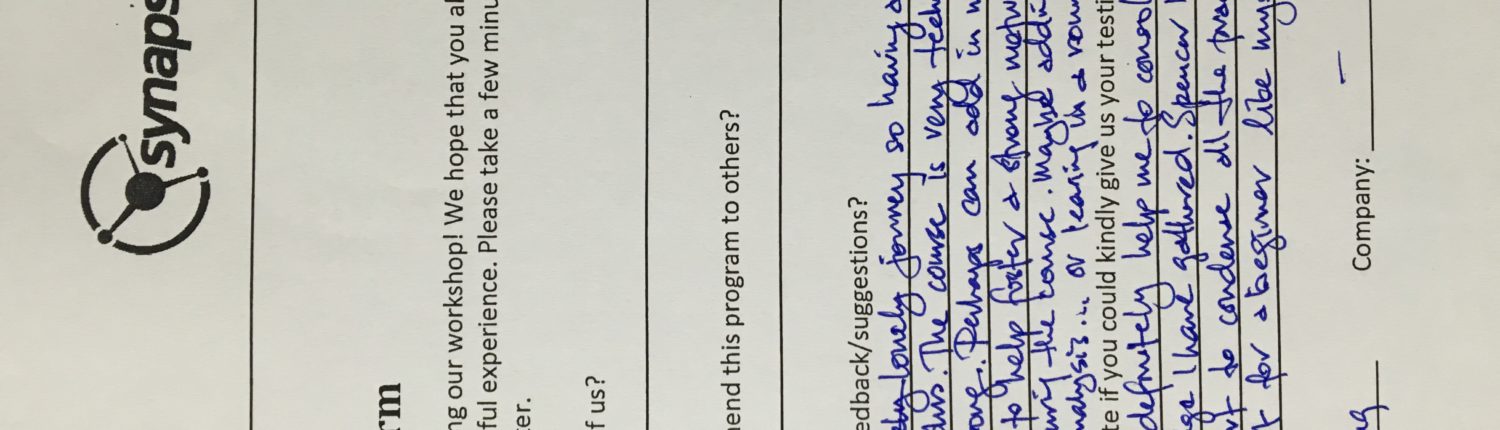 synaps
rm
ng our workshop! We hope that you al
ful experience. Please take a few minu
ter.
f us?
mend this program to others?
edback/suggestions?
lonely journey so having a
. The course is very tech
. Perhaps can add in
to help foster a strong netw
the course. Maybe addi
analysis... or teaming in a
te if you could kindly give us your testi
definitely help me to consol
I have gathered. Spencer
to condense all the
for a beginner like mys
Company: –